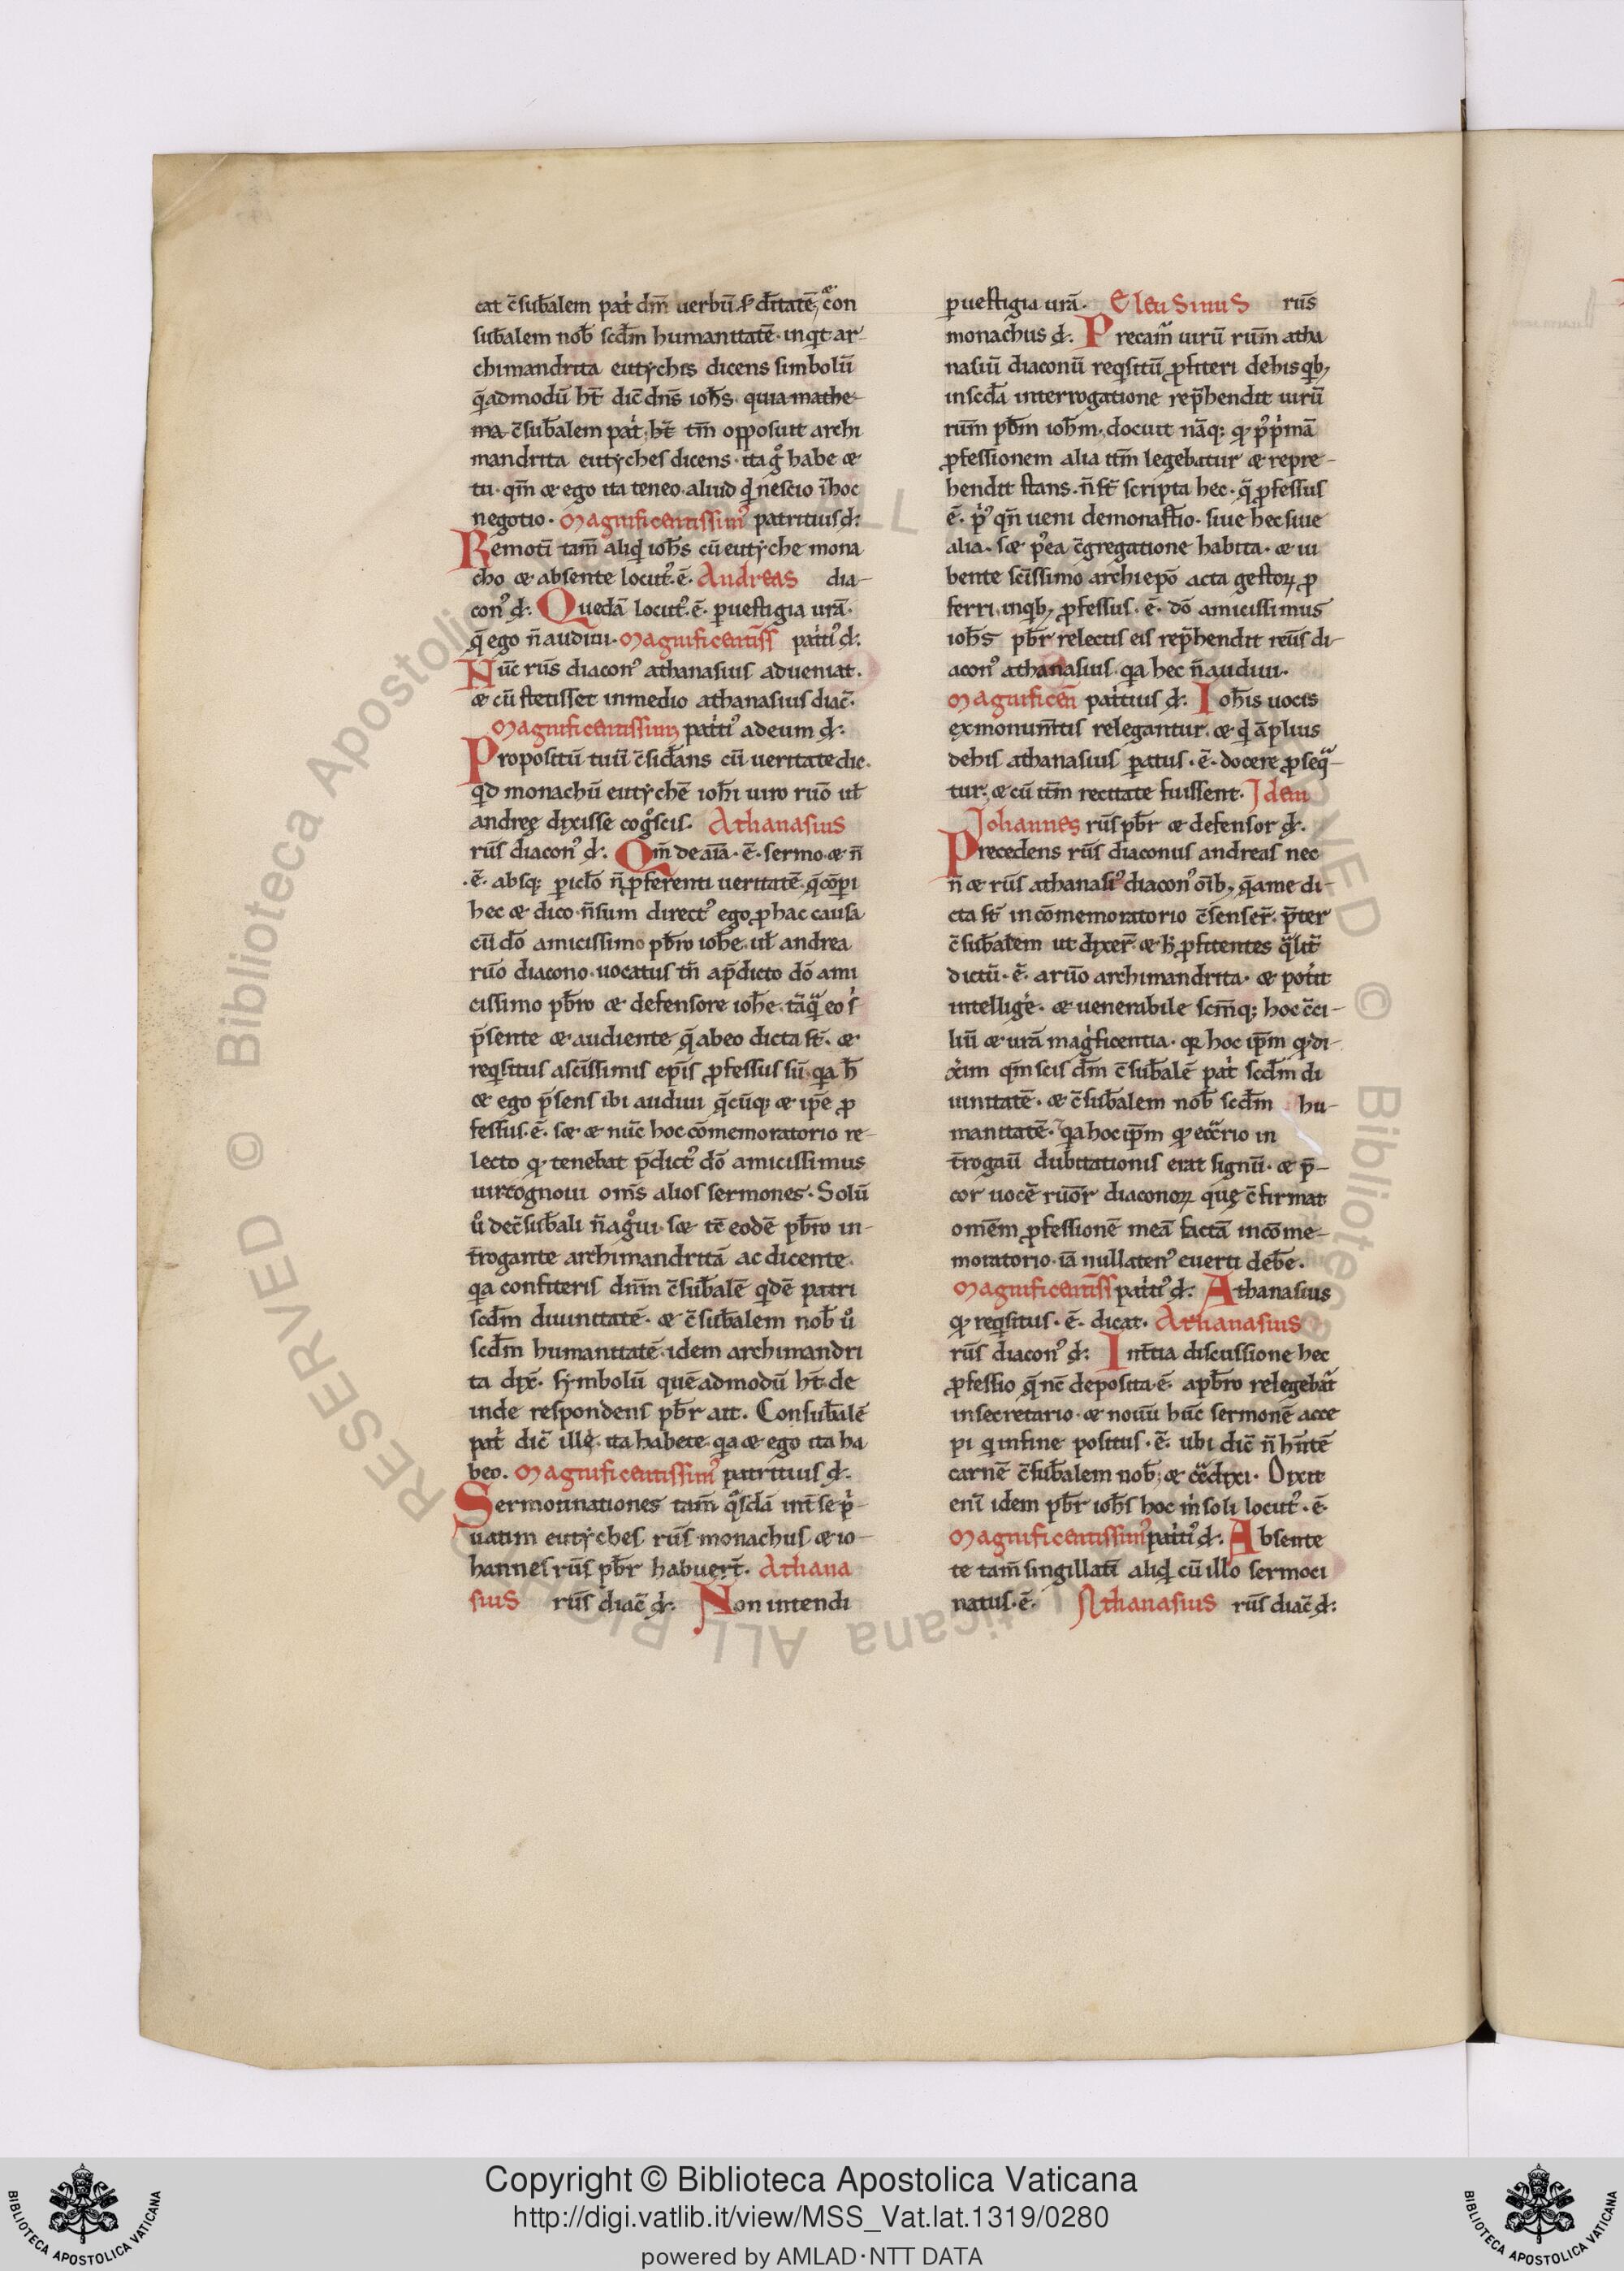 cat c̄sub̄alem pat̓ dm̄ uerbū ẜ dīitatē, æ con
sub̄alem nob̄ scd̄m humanitatē· inqt ar-
chimandrita eutychis dicens simbolū
q̄admodū ht̄ dic̄ dn̄s ioh̄s· quia mathe-
ma c̄sub̄alem pat̓, ht̄ tm̄ opposuit archi
mandrita eutyches dicens· itaq̊ habe æ
tu· qm̄ æ ego ita teneo· aliud q̓ nescio ī hoc
negotio· Magnificentissim᾿ patritius đ:
Remotī tam̄ aliq̓ ioh̄s cū eutyche mona
cho æ absente locut᾿·ē· Andreas dia-
con᾿ đ: Quedā locut᾿·ē· p̱uestigia urā·
q̄ ego n̄ audiui· Magnificentiss̄ pat̓ti᾿ đ:
Nūc rūs diacon᾿ athanasius adueniat·
æ cū stetisset inmedio athanasius diac̄·
Magnificentissim᾿ pat̓ti᾿ adeum đ:
Propositū tuū c̄sid̄ans cū ueritate dic·
qd monachū eutychē ioh̄i uiro ruō ul̄
andreę dixisse cog̊scis· Athanasius
rūs diacon᾿ đ: Qm̄ de aīa·ē· sermo· æ n̄
·ē· absq; p̱iclo n̄ p̱ferenti ueritatē· q̄ cōp̱i
hec æ dico· n̄ sum direct᾿ ego ꝓ hac causa
cū dō amicissimo pb̄ro iohe· ul̄ andrea
ruō diacono· uocatus tn̄ ap̄dicto dō ami
cissimo pb̄ro æ defensore iohe· tāq̄ eo s̓
p̄sente æ audiente q̄ abeo dicta st̄· æ
reqsitus asc̄issimis ep̄is ꝓfessus sū· qa h̄
æ ego p̄sens ibi audiui q̄cūq; æ ip̄e ꝓ
fessus·ē· sæ æ nūc hoc cōmemoratorio re-
lecto qꝫ tenebat p̄dict᾿ dō amicissimus
uir cognoui om̄s alios sermones· Solū
ů dec̄sub̄ali n̄ ag̊ui· sæ tē eodē pb̄ro in-
t̄rogante archimandritā ac dicente·
qa confiteris dnm̄ c̄sub̄alē qdē patri
scd̄m diuinitatē· æ c̄sub̄alem nob̄ ů
scd̄m humanitatē· idem archimandri
ta dix̄· symbolū quēadmodū ht̄· de
inde respondens pb̄r ait· Consub̄alē
pat̓ dic̄ ille· ita habete· qa æ ego ita ha
beo· Magnificentissim᾿ patritius đ·
Sermonnationes tam̄ q̊sdā int̄ se p̓-
uatim eutyches rūs monachus æ io-
hannes rūs pb̄r habuert̄· Athana
sius rūs diac̄ đ: Non intendi
p̱uestigia urā· Eleusinus rūs
monachus đ: Precam̄ uirū rum̄ atha
nasiū diaconū reqsitū ꝓfiteri dehis qb,
inscd̄a interrogatione rep̄hendit uirū
rum̄ pb̄m ioh̄m· docuit nāq; qꝫ p᾿ p̓mā
ꝓfessionem alia itm̄ legebatur æ repre-
hendit stans· n̄ st̄ scripta hec· q̄ ꝓfessus
ē· p᾿ qn̄ ueni demonast̄io· siue hec siue
alia· sæ p᾿ea c̄gregatione habita· æ iu
bente sc̄issimo archiepō acta gestoꝝ ꝓ
ferri, inqb, ꝓfessus·ē· dō amicissimus
ioh̄s pb̄r relectis eis rep̄hendit reūs di-
acon᾿ athanasius· qa hec n̄ audiui·
Magnificen̄ pat̓tius đ: Ioh̄is uocis
exmonum̄tis relegantur· æ q̓ āplius
dehis athanasius paratus·ē· docere ꝓseq̄-
tur; æ cū itm̄ recitate fuissent· Idem
Johannes rūs pb̄r æ defensor đ·
Precedens rūs diaconus andreas nec
n̄ æ rūs athanasi᾿ diacon᾿ oīb, q̄ ame di-
cta st̄ incōmemoratorio c̄senser̄· p̄ter
c̄sub̄alem ut dixer̄· æ h̓ ꝓfitentes q̄lit̄
dictū·ē· aruō archimandrita· æ potit
intellig̓e· æ uenerabile scm̄q; hoc c̄ci-
liū æ urā mag̓ficentia· qꝛ hoc ip̄m qꝫ di-
xim qm̄ scis dm̄ c̄sub̄alē pat̓ scd̄m di
uinitatē· æ c̄sub̄alem nob̄ scd̄m hu-
manitatē· qa hoc ip̄m qꝫ ec̄crio in
t̄rogaū dubitationis erat signū· æ p̄-
cor uocē ruōr diaconoꝝ quę c̄firmat
omēm ꝓfessionē meā factā incōme-
moratorio· iā nullaten᾿ euerti deb̄e·
Magnificentiss̄ pat̓ti᾿ đ: Athanasius
qꝫ reqsitus·ē· dicat· Athanasius
rūs diacon᾿ đ: Int̄tia discussione hec
ꝓfessio q̄ nc̄ deposita·ē· apb̄ro relegebat̄
insecretario· æ nouū hūc sermonē acce
pi q infine positus·ē· ubi dic̄ n̄ hn̄tē
carnē c̄sub̄alem nob; æ c̄c̄dixi· Dixit
enī idem pb̄r ioh̄s hoc m̓ soli locut᾿·ē·
Magnificentissim᾿ pat̓ti᾿ đ: Absente
te tam̄ singillatī aliq̓ cū illo sermoci
natus·ē· Athanasius rūs diac̄ đ:
Copyright © Biblioteca Apostolica Vaticana
http://digi.vatlib.it/view/MSS_Vat.lat.1319/0280
powered by AMLAD·NTT DATA